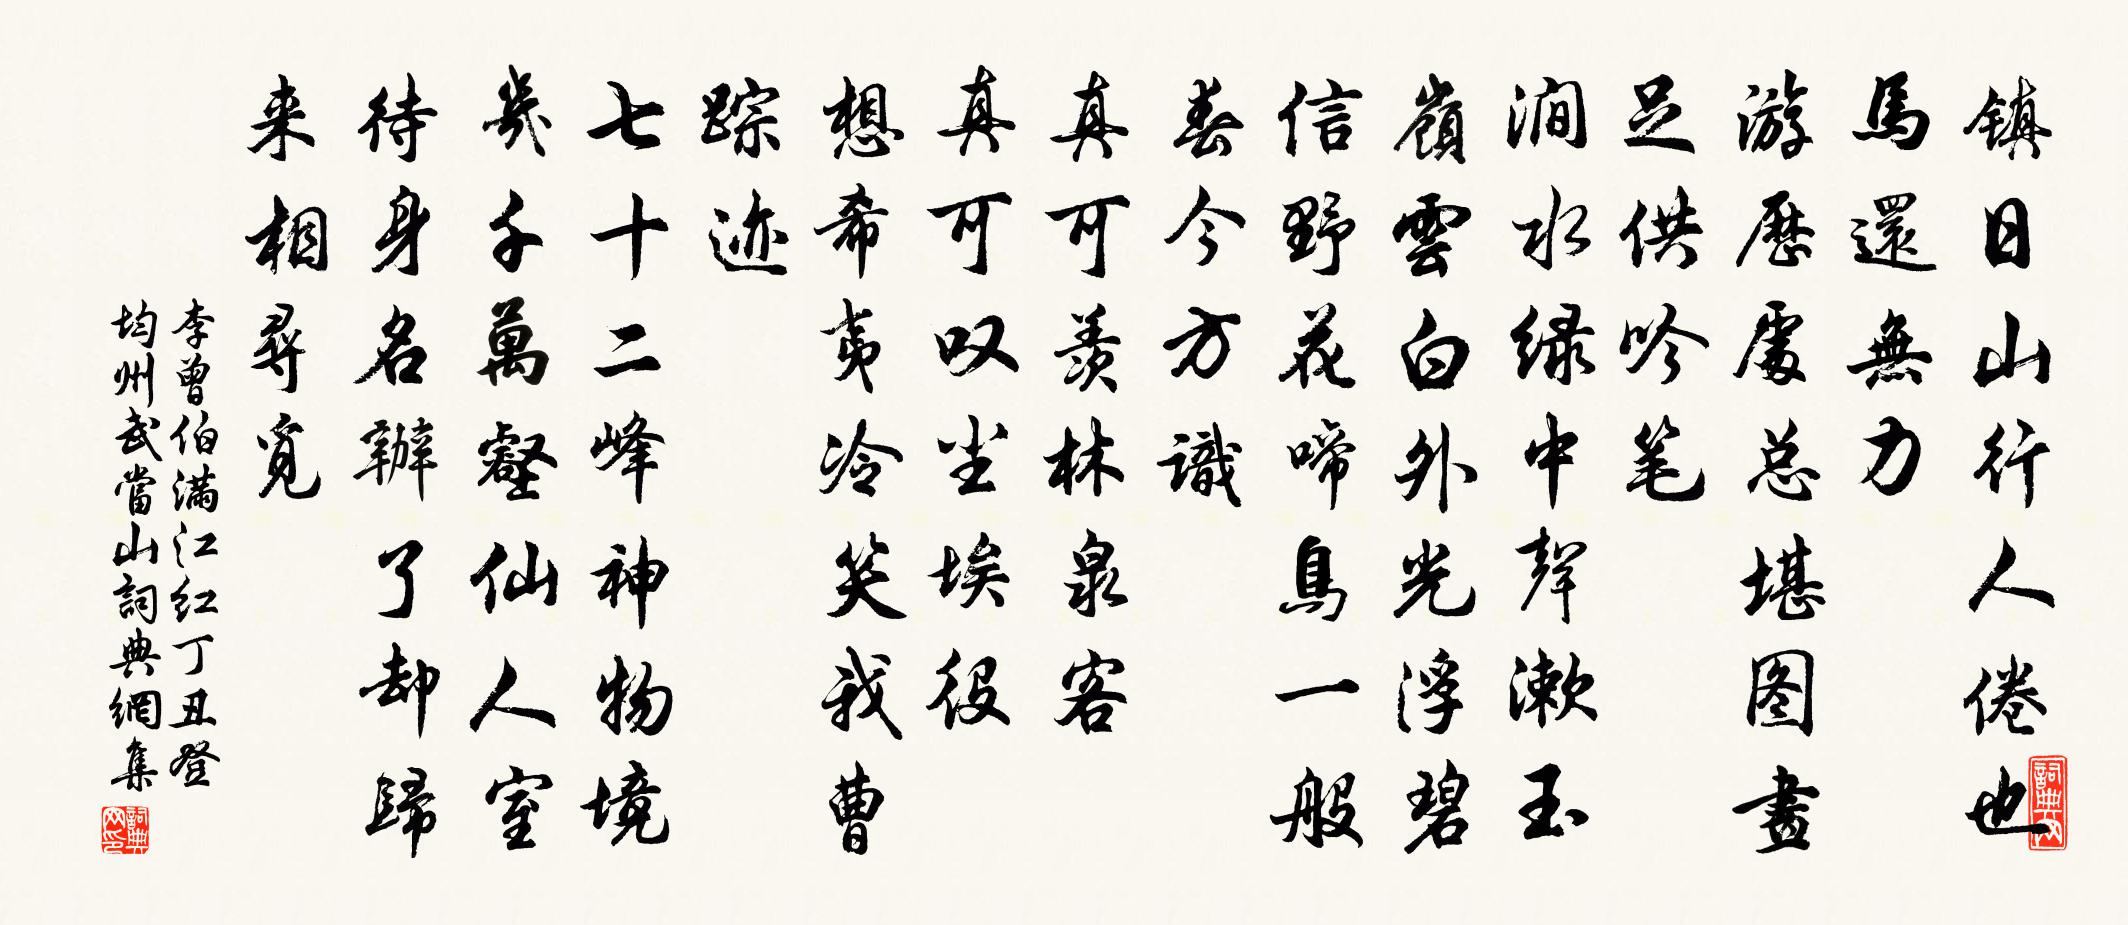 镇日山行人倦也
馬還無力
游歷處总堪图畫
足供吟笔
澗水绿中聲漱玉
嶺雲白外光浮碧
信野花啼鳥一般
春今方識
真可羡林泉客
真可叹尘埃役
想希夷冷笑我曹
踪迹
七十二峰神物境
幾千萬壑仙人室
待身名辦了却歸
来相尋觅
李曾伯满江红丁丑登
均州武當山詞典網集
詞典网
詞典网印